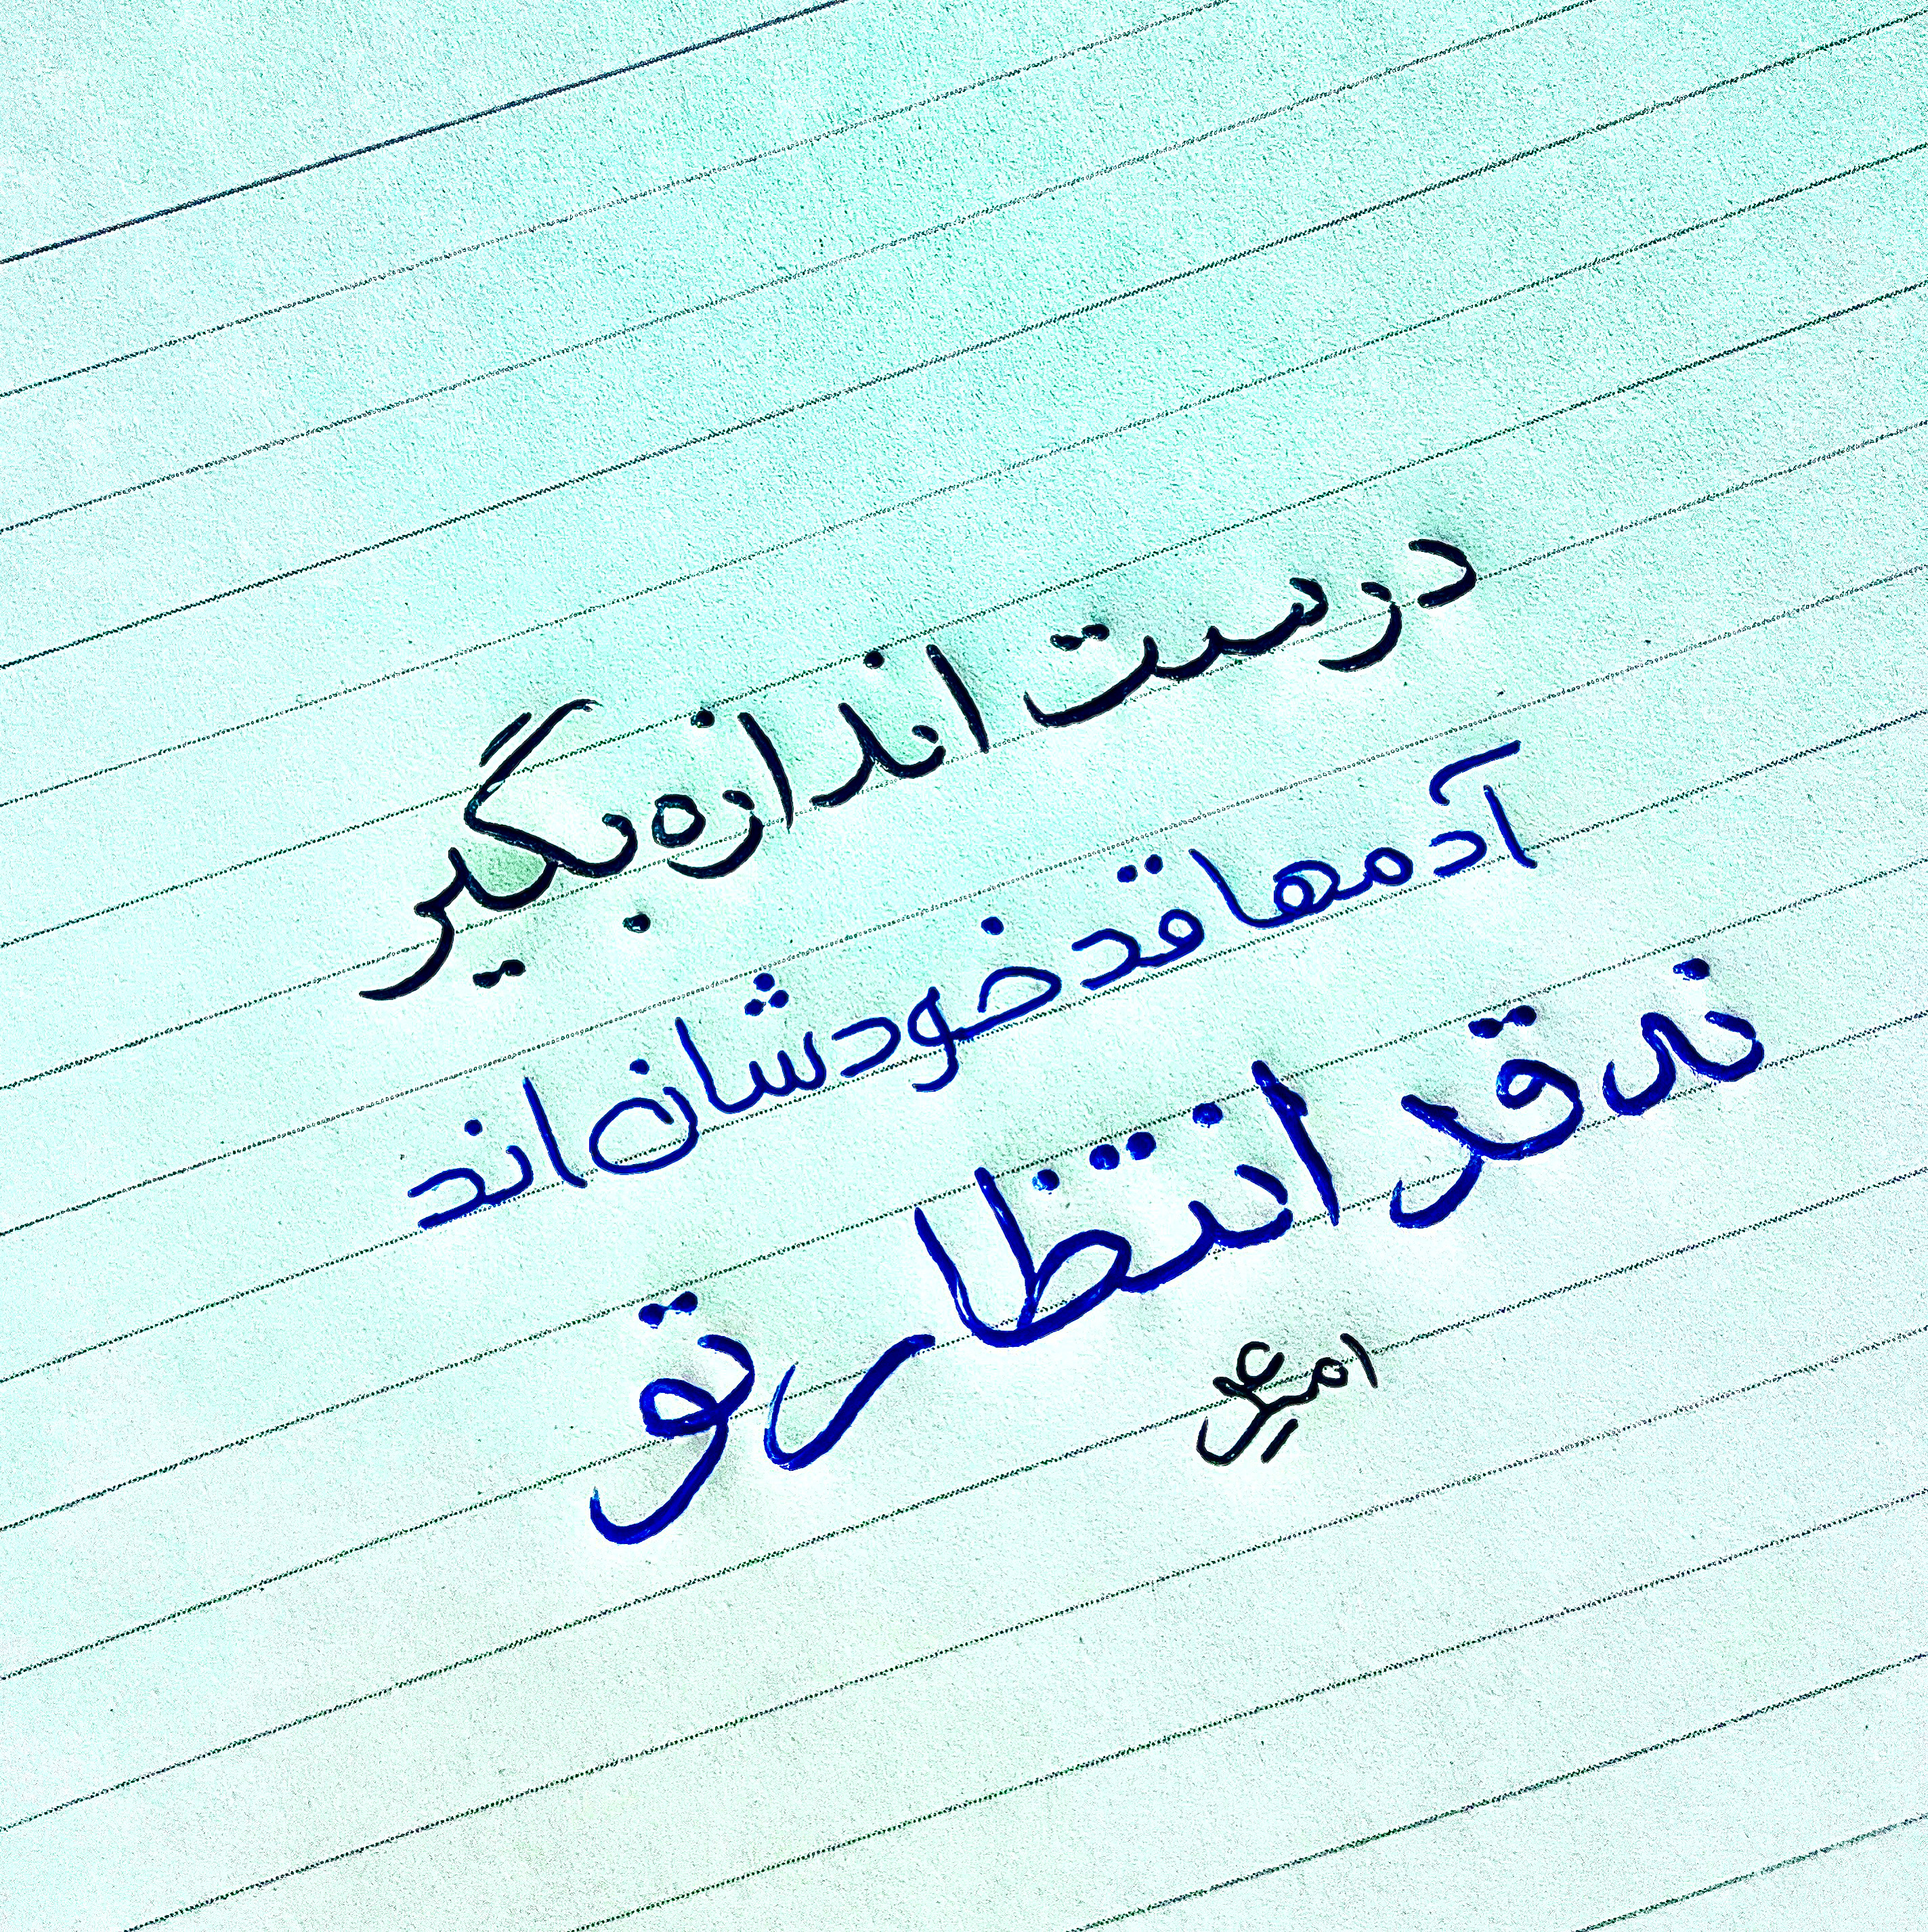 درست اندازه بگیر
آدمها قد خودشان اند
نه قد انتظار تو
امیرعلی